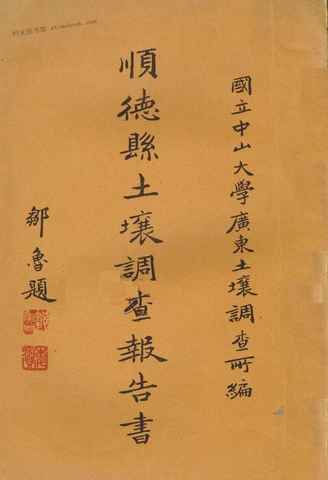 國立中山大學廣東土壤調查所編
順德縣土壤調查報告書
鄒魯題